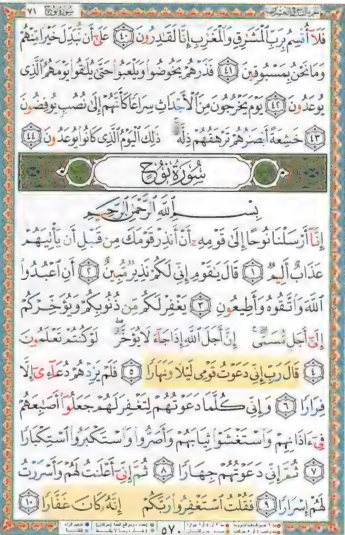 سُورَةُ نُوحٍ ٧١
فَلَآ أُقْسِمُ بِرَبِّ ٱلْمَشَٰرِقِ وَٱلْمَغَٰرِبِ إِنَّا لَقَٰدِرُونَ ٤٠ عَلَىٰٓ أَن نُّبَدِّلَ خَيْرًا مِّنْهُمْ
وَمَا نَحْنُ بِمَسْبُوقِينَ ٤١ فَذَرْهُمْ يَخُوضُوا۟ وَيَلْعَبُوا۟ حَتَّىٰ يُلَٰقُوا۟ يَوْمَهُمُ ٱلَّذِى
يُوعَدُونَ ٤٢ يَوْمَ يَخْرُجُونَ مِنَ ٱلْأَجْدَاثِ سِرَاعًا كَأَنَّهُمْ إِلَىٰ نُصُبٍ يُوفِضُونَ
٤٣ خَٰشِعَةً أَبْصَٰرُهُمْ تَرْهَقُهُمْ ذِلَّةٌ ذَٰلِكَ ٱلْيَوْمُ ٱلَّذِى كَانُوا۟ يُوعَدُونَ ٤٤
سُورَةُ نُوحٍ
بِسْمِ ٱللَّهِ ٱلرَّحْمَٰنِ ٱلرَّحِيمِ
إِنَّآ أَرْسَلْنَا نُوحًا إِلَىٰ قَوْمِهِۦٓ أَنْ أَنذِرْ قَوْمَكَ مِن قَبْلِ أَن يَأْتِيَهُمْ
عَذَابٌ أَلِيمٌ ١ قَالَ يَٰقَوْمِ إِنِّى لَكُمْ نَذِيرٌ مُّبِينٌ ٢ أَنِ ٱعْبُدُوا۟
ٱللَّهَ وَٱتَّقُوهُ وَأَطِيعُونِ ٣ يَغْفِرْ لَكُم مِّن ذُنُوبِكُمْ وَيُؤَخِّرْكُمْ
إِلَىٰٓ أَجَلٍ مُّسَمًّى إِنَّ أَجَلَ ٱللَّهِ إِذَا جَآءَ لَا يُؤَخَّرُ لَوْ كُنتُمْ تَعْلَمُونَ
٤ قَالَ رَبِّ إِنِّى دَعَوْتُ قَوْمِى لَيْلًا وَنَهَارًا ٥ فَلَمْ يَزِدْهُمْ دُعَآءِىٓ إِلَّا
فِرَارًا ٦ وَإِنِّى كُلَّمَا دَعَوْتُهُمْ لِتَغْفِرَ لَهُمْ جَعَلُوٓا۟ أَصَٰبِعَهُمْ
فِىٓ ءَاذَانِهِمْ وَٱسْتَغْشَوْا۟ ثِيَابَهُمْ وَأَصَرُّوا۟ وَٱسْتَكْبَرُوا۟ ٱسْتِكْبَارًا
٧ ثُمَّ إِنِّى دَعَوْتُهُمْ جِهَارًا ٨ ثُمَّ إِنِّىٓ أَعْلَنتُ لَهُمْ وَأَسْرَرْتُ
لَهُمْ إِسْرَارًا ٩ فَقُلْتُ ٱسْتَغْفِرُوا۟ رَبَّكُمْ إِنَّهُۥ كَانَ غَفَّارًا ١٠
٥٧٠